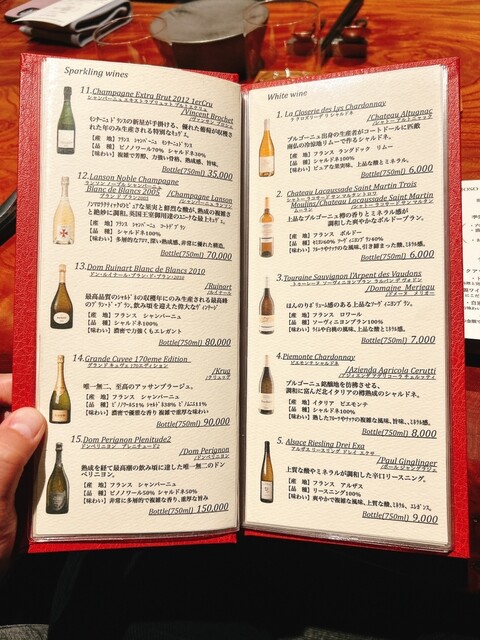 Sparkling wines
11.Champagne Extra Brut 2012 1erCru
シャンパーニュ エキストラブリュット プルミエクリュ
/Vincent Brochet
/ヴァンサン ブロシェ
れた年のみ生産される特別なキュヴェ。
【産 地】フランス シャンパーニュ モンターニュドランス
【品 種】ピノノワール70% シャルドネ30%
【味わい】複雑で芳醇、力強い骨格、熟成感、旨味。
Bottle(750ml) 35,000
12.Lanson Noble Champagne
ランソン ノーブル シャンパーニュ
Blanc de Blancs 2005 /Champagne Lanson
ブラン ド ブラン2005 /シャンパーニュ ランソン
と絶妙に調和。英国王室御用達のエノーナの最上キュヴェ。
【品 種】シャルドネ100%
【味わい】多層的なアロマ、深い熟成感、非常に優れた構造。
Bottle(750ml) 70,000
13.Dom Ruinart Blanc de Blancs 2010
ドン・ルイナール・ブラン・ド・ブラン・2010
/Ruinart
/ルイナール
最高品質のシャルドネの収穫年にのみ生産される最高峰
のブラン・ド・ブラン。飲み頃を迎えた偉大なヴィンテージ
【産 地】フランス シャンパーニュ
【品 種】シャルドネ100%
【味わい】濃密で力強くもエレガント
Bottle(750ml) 80,000
14.Grande Cuvee 170eme Edition
グランド キュヴェ 170エディション
/Krug
/クリュッグ
唯一無二、至高のアッサンブラージュ。
【産 地】フランス シャンパーニュ
【品 種】ピノノワール51% シャルドネ38% ピノムニエ11%
【味わい】濃密で優雅な香り 複雑で重厚な味わい
Bottle(750ml) 90,000
15.Dom Perignon Plenitude2
ドンペリニヨン プレニチュード2
/Dom Perignon
/ドンペリニヨン
熟成を経て最高潮の飲み頃に達した唯一無二のドン
ペリニヨン。
【産 地】フランス シャンパーニュ
【品 種】ピノノワール50% シャルドネ50%
【味わい】非常に多層的で複雑な香り、重厚な旨み
Bottle(750ml) 150,000
White wine
1. La Closerie des Lys Chardonnay
ラ クロズリー デ リ シャルドネ
/Chateau Altugnac
ブルゴーニュ出身の生産者がコートドールに匹敵
南仏の冷涼地リムーで作るシャルドネ。
【産 地】フランス ラングドック リムー
【品 種】シャルドネ100%
【味わい】ピュアな果実味、上品な酸とミネラル。
Bottle(750ml) 6,000
2. Chateau Lacaussade Saint Martin Trois
シャトー ラコサード サン マルタン トロワ
Moulins/Chateau Lacaussade Saint Martin
ムーラン /シャトー ラコサード サン マルタン
上品なブルゴーニュ樽の香りとミネラル感が
調和した爽やかなボルドーブラン。
【産 地】フランス ボルドー
【品 種】セミヨン60% ソーヴィニヨンブラン40%
【味わい】フルーティーな風味、引き締まった酸、ミネラル感。
Bottle(750ml) 6,000
3.Touraine Sauvignon l'Arpent des Vaudons
トゥーレーヌ ソーヴィニヨン ラルパン デ ヴォドン
/Domaine Merieau
/ドメーヌ メリオー
ほんのりボリューム感のある上品なソーヴィニヨンブラン。
【産 地】フランス ロワール
【品 種】ソーヴィニヨンブラン100%
【味わい】ライムや白桃の風味、上品な酸とミネラル感。
Bottle(750ml) 7,000
4.Piemonte Chardonnay
ピエモンテ シャルドネ
/Azienda Agricola Cerutti
/アジィエンダ アグリコーラ チェルッティ
ブルゴーニュ銘醸地を彷彿させる。
調和に富んだ北イタリアの樽熟成のシャルドネ。
【産 地】イタリア ピエモンテ
【品 種】シャルドネ100%
Bottle(750ml) 8,000
5. Alsace Riesling Drei Exa
アルザス リースリング ドレイ エクサ
/Paul Ginglinger
/ポール ジャングランジェ
上質な酸やミネラルが調和した辛口リースリング。
【産 地】フランス アルザス
【品 種】リースニング100%
【味わい】爽やかで複雑な風味、上質な酸、ミネラル、エレガンス。
Bottle(750ml) 9,000